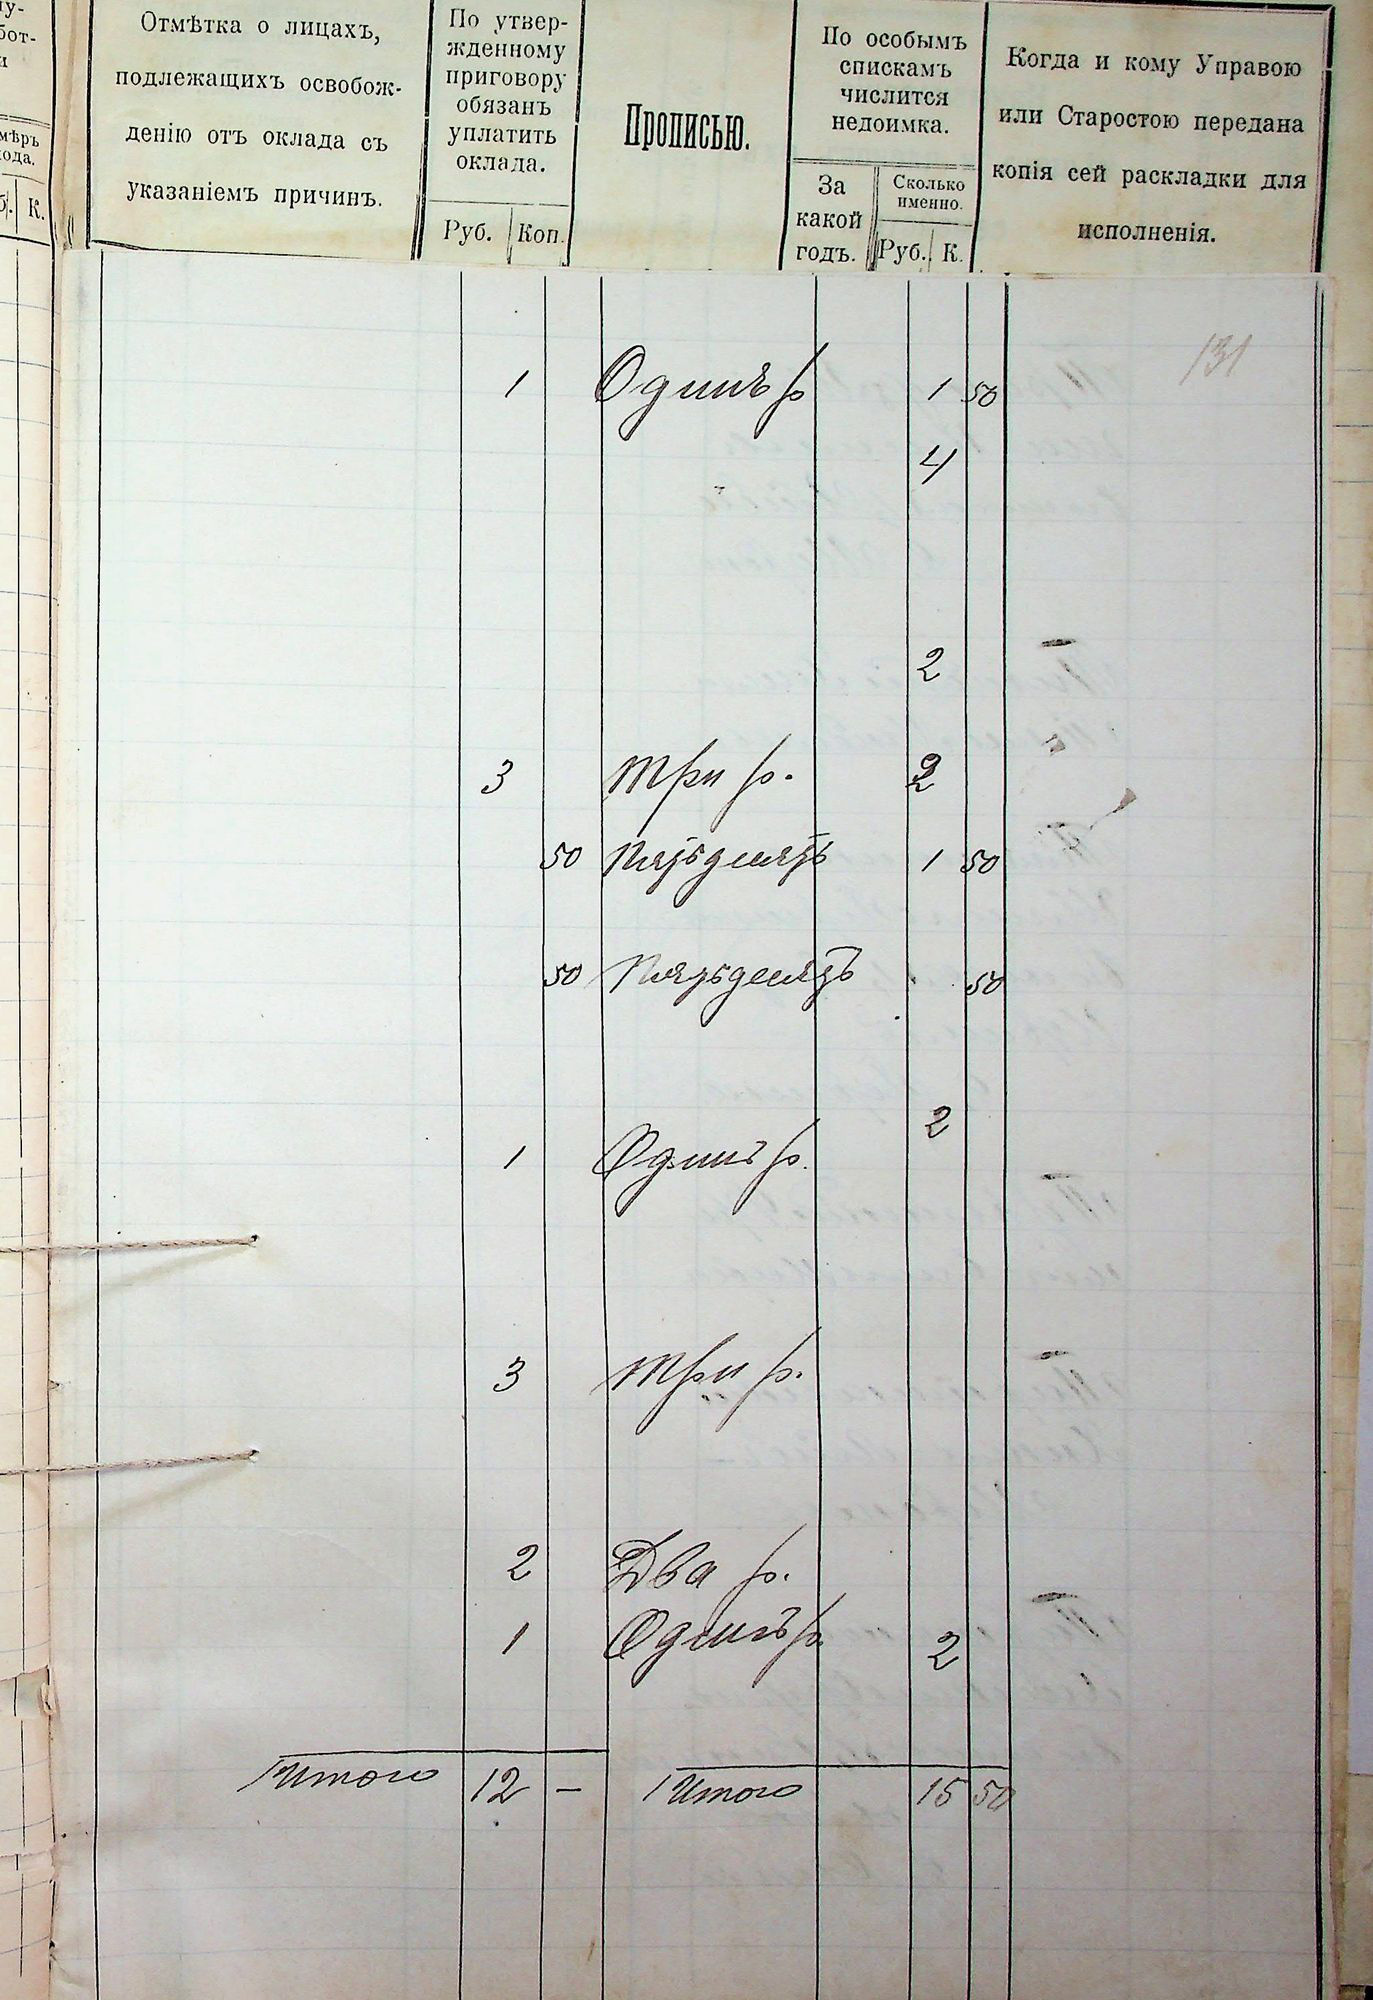 Отмѣтка о лицахъ,
подлежащихъ освобож-
денію отъ оклада съ
указаніемъ причинъ.
По утвер-
жденному
приговору
обязанъ
уплатить
оклада.
Руб. Коп.
Прописью.
По особымъ
спискамъ
числится
недоимка.
За
какой
годъ.
Сколько
именно.
Руб. К.
Когда и кому Управою
или Старостою передана
копія сей раскладки для
исполненія.
К.
131
1 Одинъ р 1 50
4
2
3 Три р. 2
50 Пятьдесятъ 1 50
50 Пятьдесятъ 50
2
1 Одинъ р.
3 Три р.
2 Два р.
1 Одинъ р. 2
Итого 12 — Итого 15 50